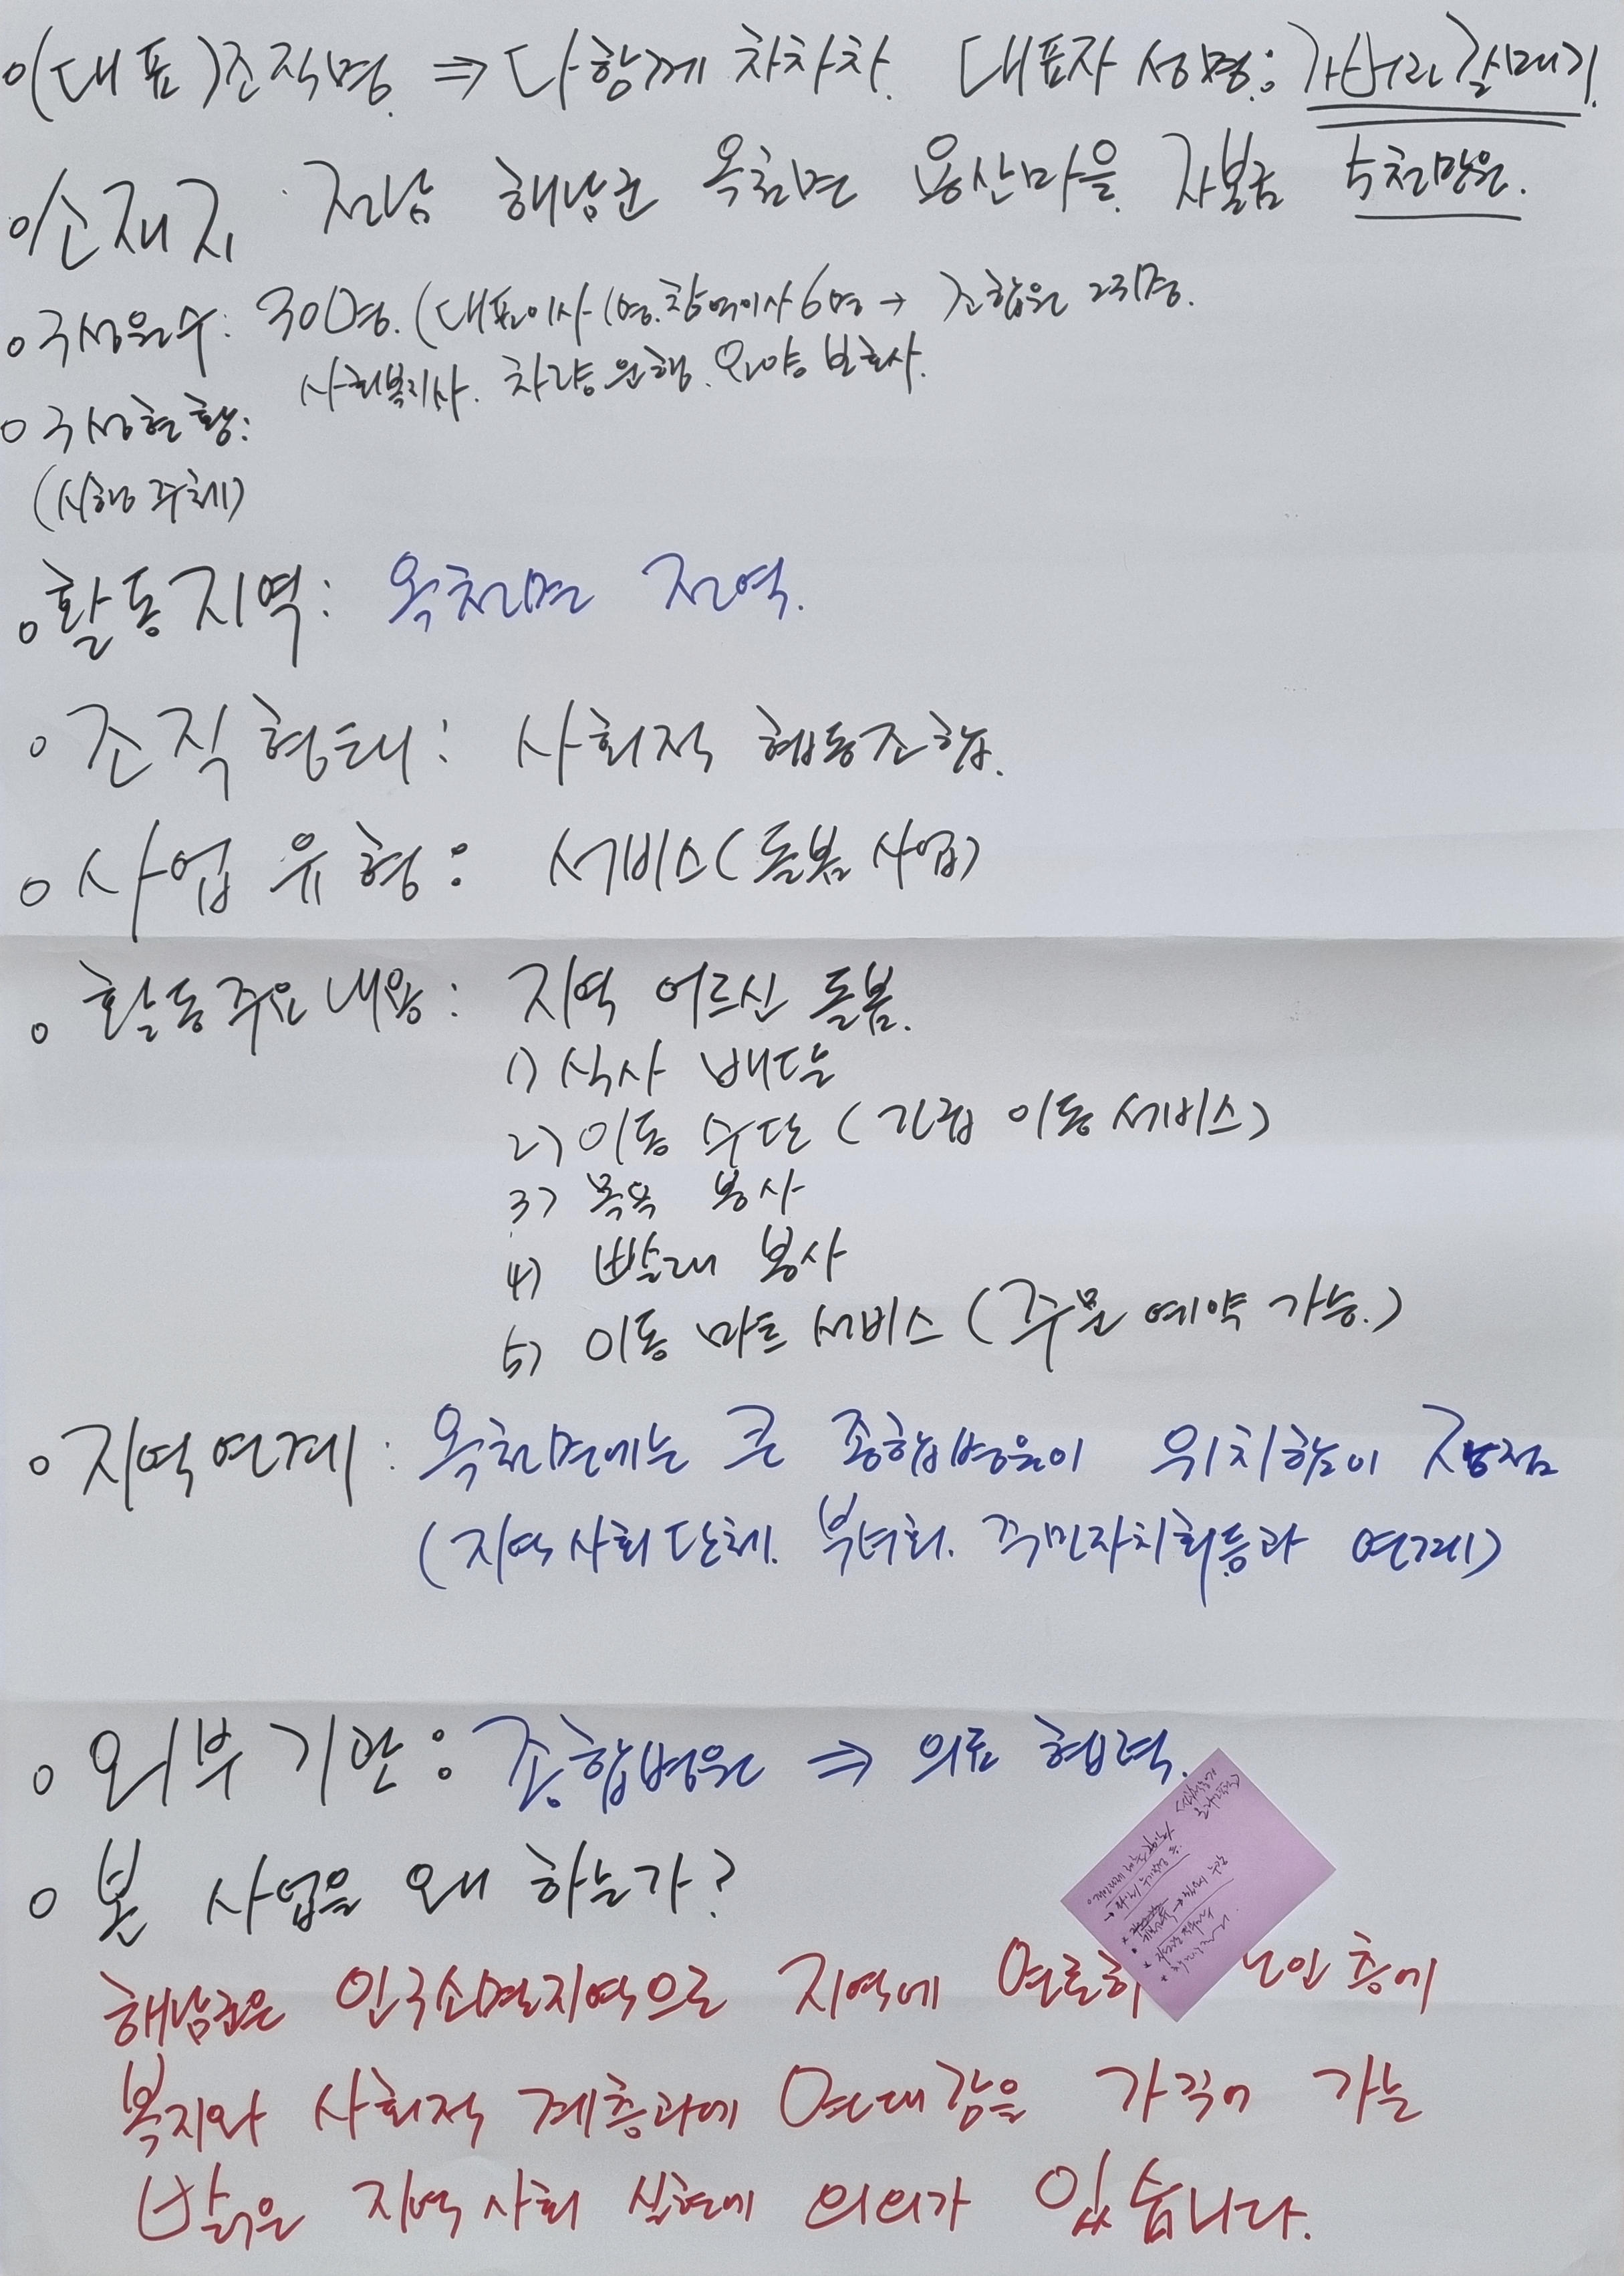 o(대표)조직명 ⇒ 다함께 차차차. 대표자 성명: 갈매기.
o소재지 전남 해남군 옥천면 용산마을. 자본금 5천만원.
o구성원수: 30명. (대표이사 1명. 참여이사 6명 → 조합원 23명.
사회복지사. 차량운행. 요양보호사.
o구성현황:
(시행주체)
o활동지역: 옥천면 전역.
o조직형태: 사회적 협동조합.
o사업유형: 서비스(돌봄사업)
o활동주요내용: 지역 어르신 돌봄.
1) 식사 배달
2) 이동 수단 (긴급 이동 서비스)
3) 목욕 봉사
4) 빨래 봉사
5) 이동 마트 서비스 (주문 예약 가능.)
o지역연계: 옥천면에는 큰 종합병원이 위치함이 장점
(지역사회단체. 부녀회. 주민자치회등과 연계)
o외부기관: 종합병원 ⇒ 의료 협력.
o본 사업을 왜 하는가?
해남군은 인구소멸지역으로 지역에 연로하 노인층에
복지와 사회적 계층과에 연대감을 가꾸어 가는
밝은 지역사회 실현에 의의가 있습니다.